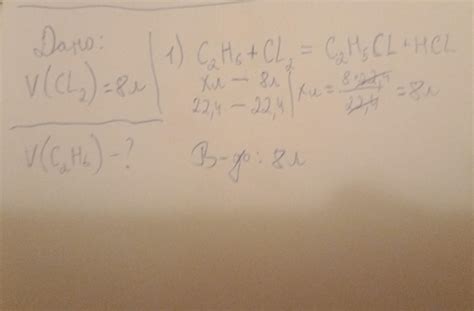 Дано:
V(CL₂)=8л
V(C₂H₆)-?
1) C₂H₆+CL₂=C₂H₅CL+HCL
xл — 8л
22,4 — 22,4
xл=8·22,4/22,4=8л
В-дь: 8л